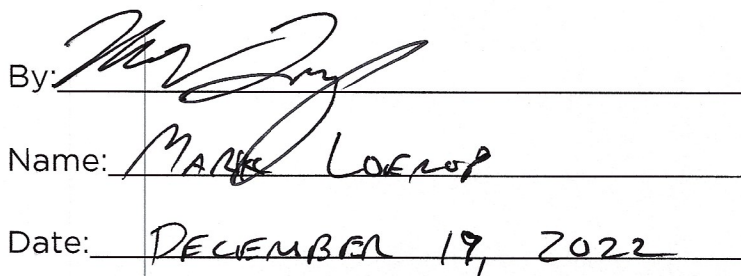 By:
Name: MARK
Date: DECEMBER 19, 2022